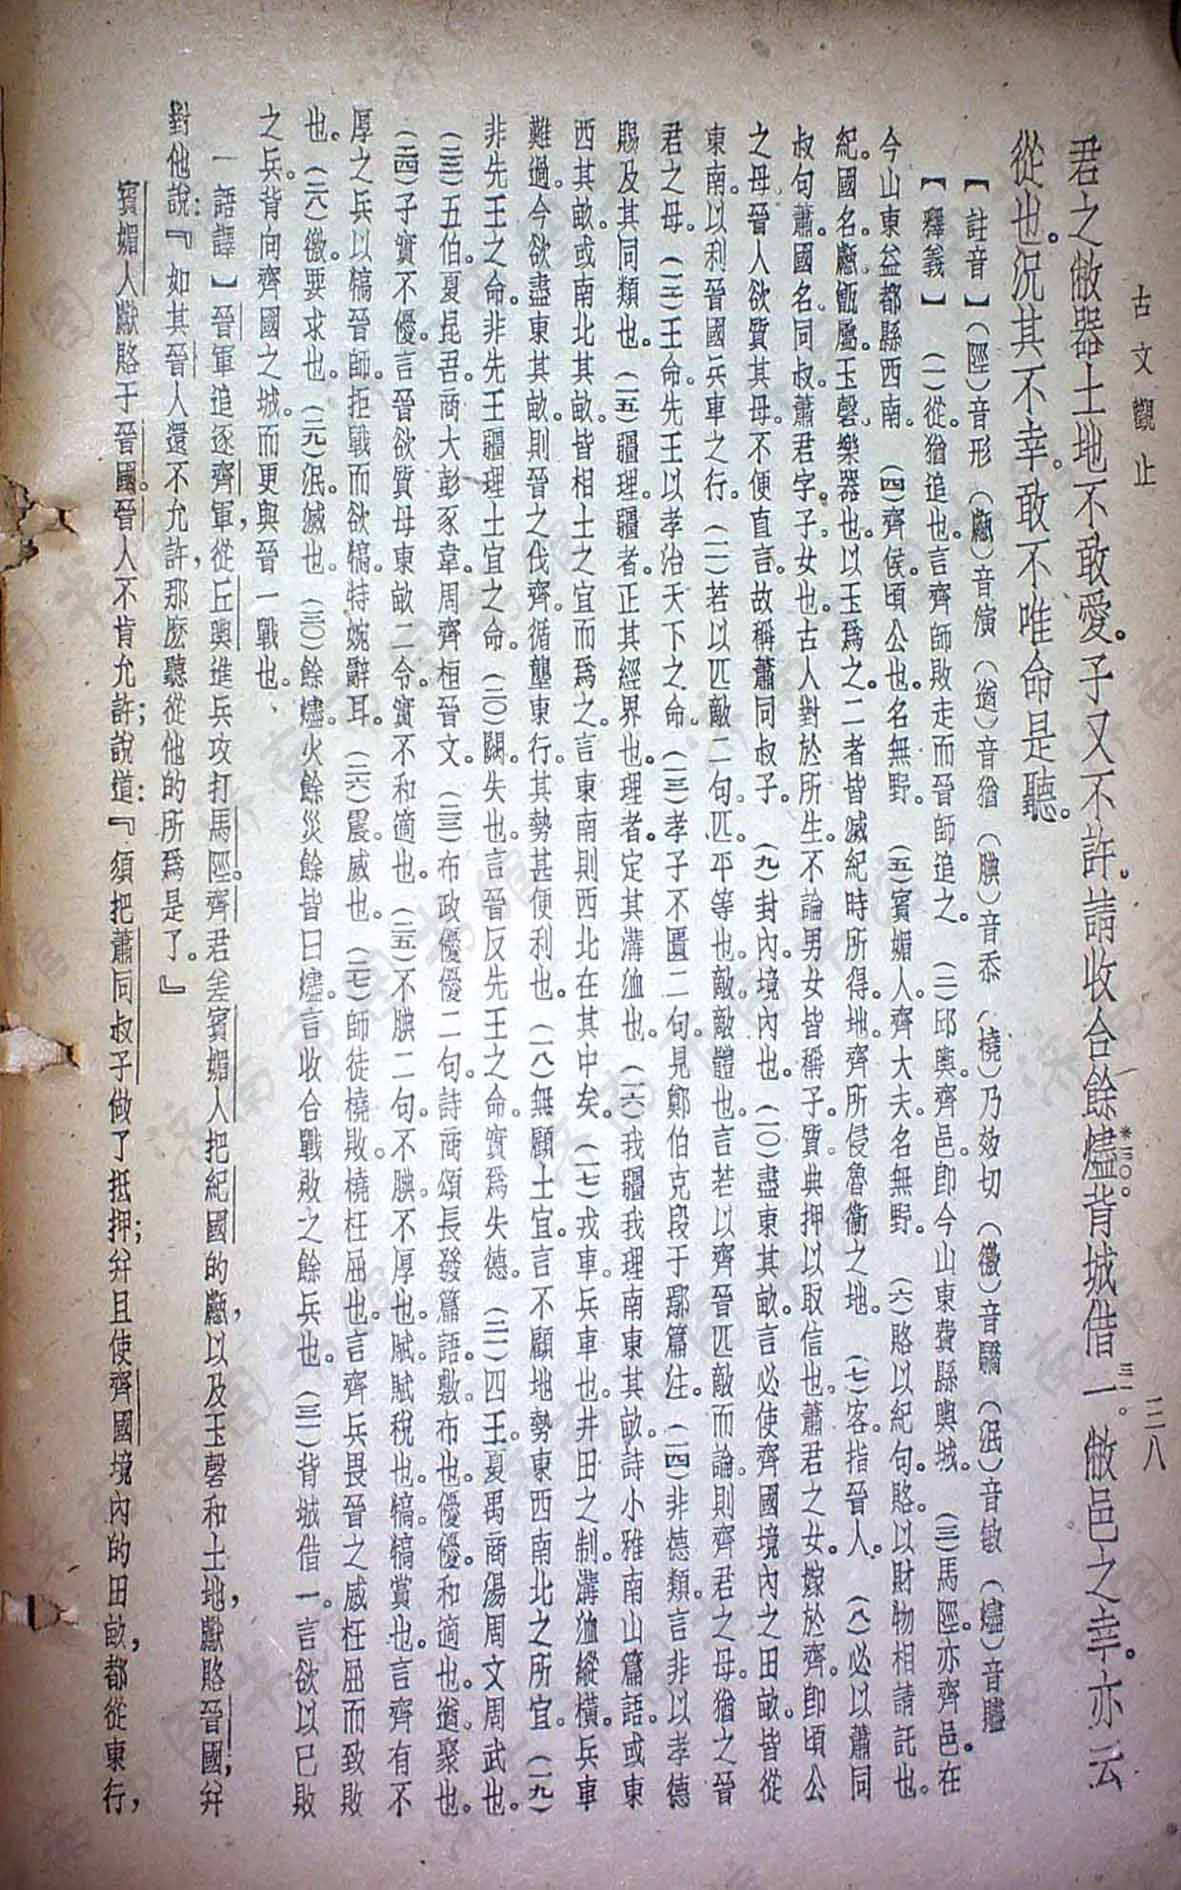 古文觀止
三八
君之敝器土地不敢愛。子又不許。請收合餘燼背城借一敝邑之幸。亦云
*三〇。
三一。
從也。況其不幸。敢不唯命是聽。
【註音】（陘）音形（甗）音演（遒）音猶（腆）音忝（橈）乃效切（徼）音驕（泯）音敏（燼）音贐
【釋義】（一）從。猶追也。言齊師敗走而晉師追之。（二）邱輿。齊邑。卽今山東費縣輿城。（三）馬陘。亦齊邑。在
今山東益都縣西南。（四）齊侯。頃公也。名無野。（五）賓媚人。齊大夫。名無野。（六）賂以紀句。賂。以財物相請託也。
紀。國名。甗。甑屬。玉磬。樂器也。以玉爲之。二者皆滅紀時所得。地。齊所侵魯衞之地。（七）客。指晉人。（八）必以蕭同
叔句。蕭。國名。同叔。蕭君字。子。女也。古人對於所生。不論男女皆稱子。質。典押以取信也。蕭君之女。嫁於齊。卽頃公
之母。晉人欲質其母。不便直言。故稱蕭同叔子。（九）封內。境內也。（一〇）盡東其畝。言必使齊國境內之田畝。皆從
東南。以利晉國兵車之行。（一一）若以匹敵二句。匹。平等也。敵。敵體也。言若以齊晉匹敵而論。則齊君之母。猶之晉
君之母。（一二）王命。先王以孝治天下之命。（一三）孝子不匱二句。見鄭伯克段于鄢篇注。（一四）非德類。言非以孝德
賜及其同類也。（一五）疆理。疆者。正其經界也。理者。定其溝洫也。（一六）我疆我理南東其畝。詩小雅南山篇語。或東
西其畝。或南北其畝。皆相土之宜而爲之。言東南則西北在其中矣。（一七）戎車。兵車也。井田之制。溝洫縱橫。兵車
難過。今欲盡東其畝。則晉之伐齊。循壟東行。其勢甚便利也。（一八）無顧土宜。言不顧地勢東西南北之所宜。（一九）
非先王之命。非先王疆理土宜之命。（二〇）闕。失也。言晉反先王之命。實爲失德。（二一）四王。夏禹商湯周文周武也。
（二二）五伯。夏昆吾。商大彭豕韋。周齊桓晉文。（二三）布政優優二句。詩商頌長發篇語。敷。布也。優優。和適也。遒。聚也。
（二四）子實不優。言晉欲質母東畝二令。實不和適也。（二五）不腆二句。不腆。不厚也。賦。賦稅也。犒。犒賞也。言齊有不
厚之兵以犒晉師。拒戰而欲犒。特婉辭耳。（二六）震。威也。（二七）師徒橈敗。橈。枉屈也。言齊兵畏晉之威枉屈而致敗
也。（二八）徼。要求也。（二九）泯。滅也。（三〇）餘燼。火餘災餘皆曰燼。言收合戰敗之餘兵也。（三一）背城借一。言欲以已敗
之兵。背向齊國之城。而更與晉一戰也。
【語譯】晉軍追逐齊軍，從丘輿進兵攻打馬陘。齊君差賓媚人把紀國的甗，以及玉磬和土地，獻賂晉國；幷
對他說：『如其晉人還不允許，那麽聽從他的所爲是了。』
賓媚人獻賂于晉國。晉人不肯允許；說道：『須把蕭同叔子做了抵押；幷且使齊國境內的田畝，都從東行，